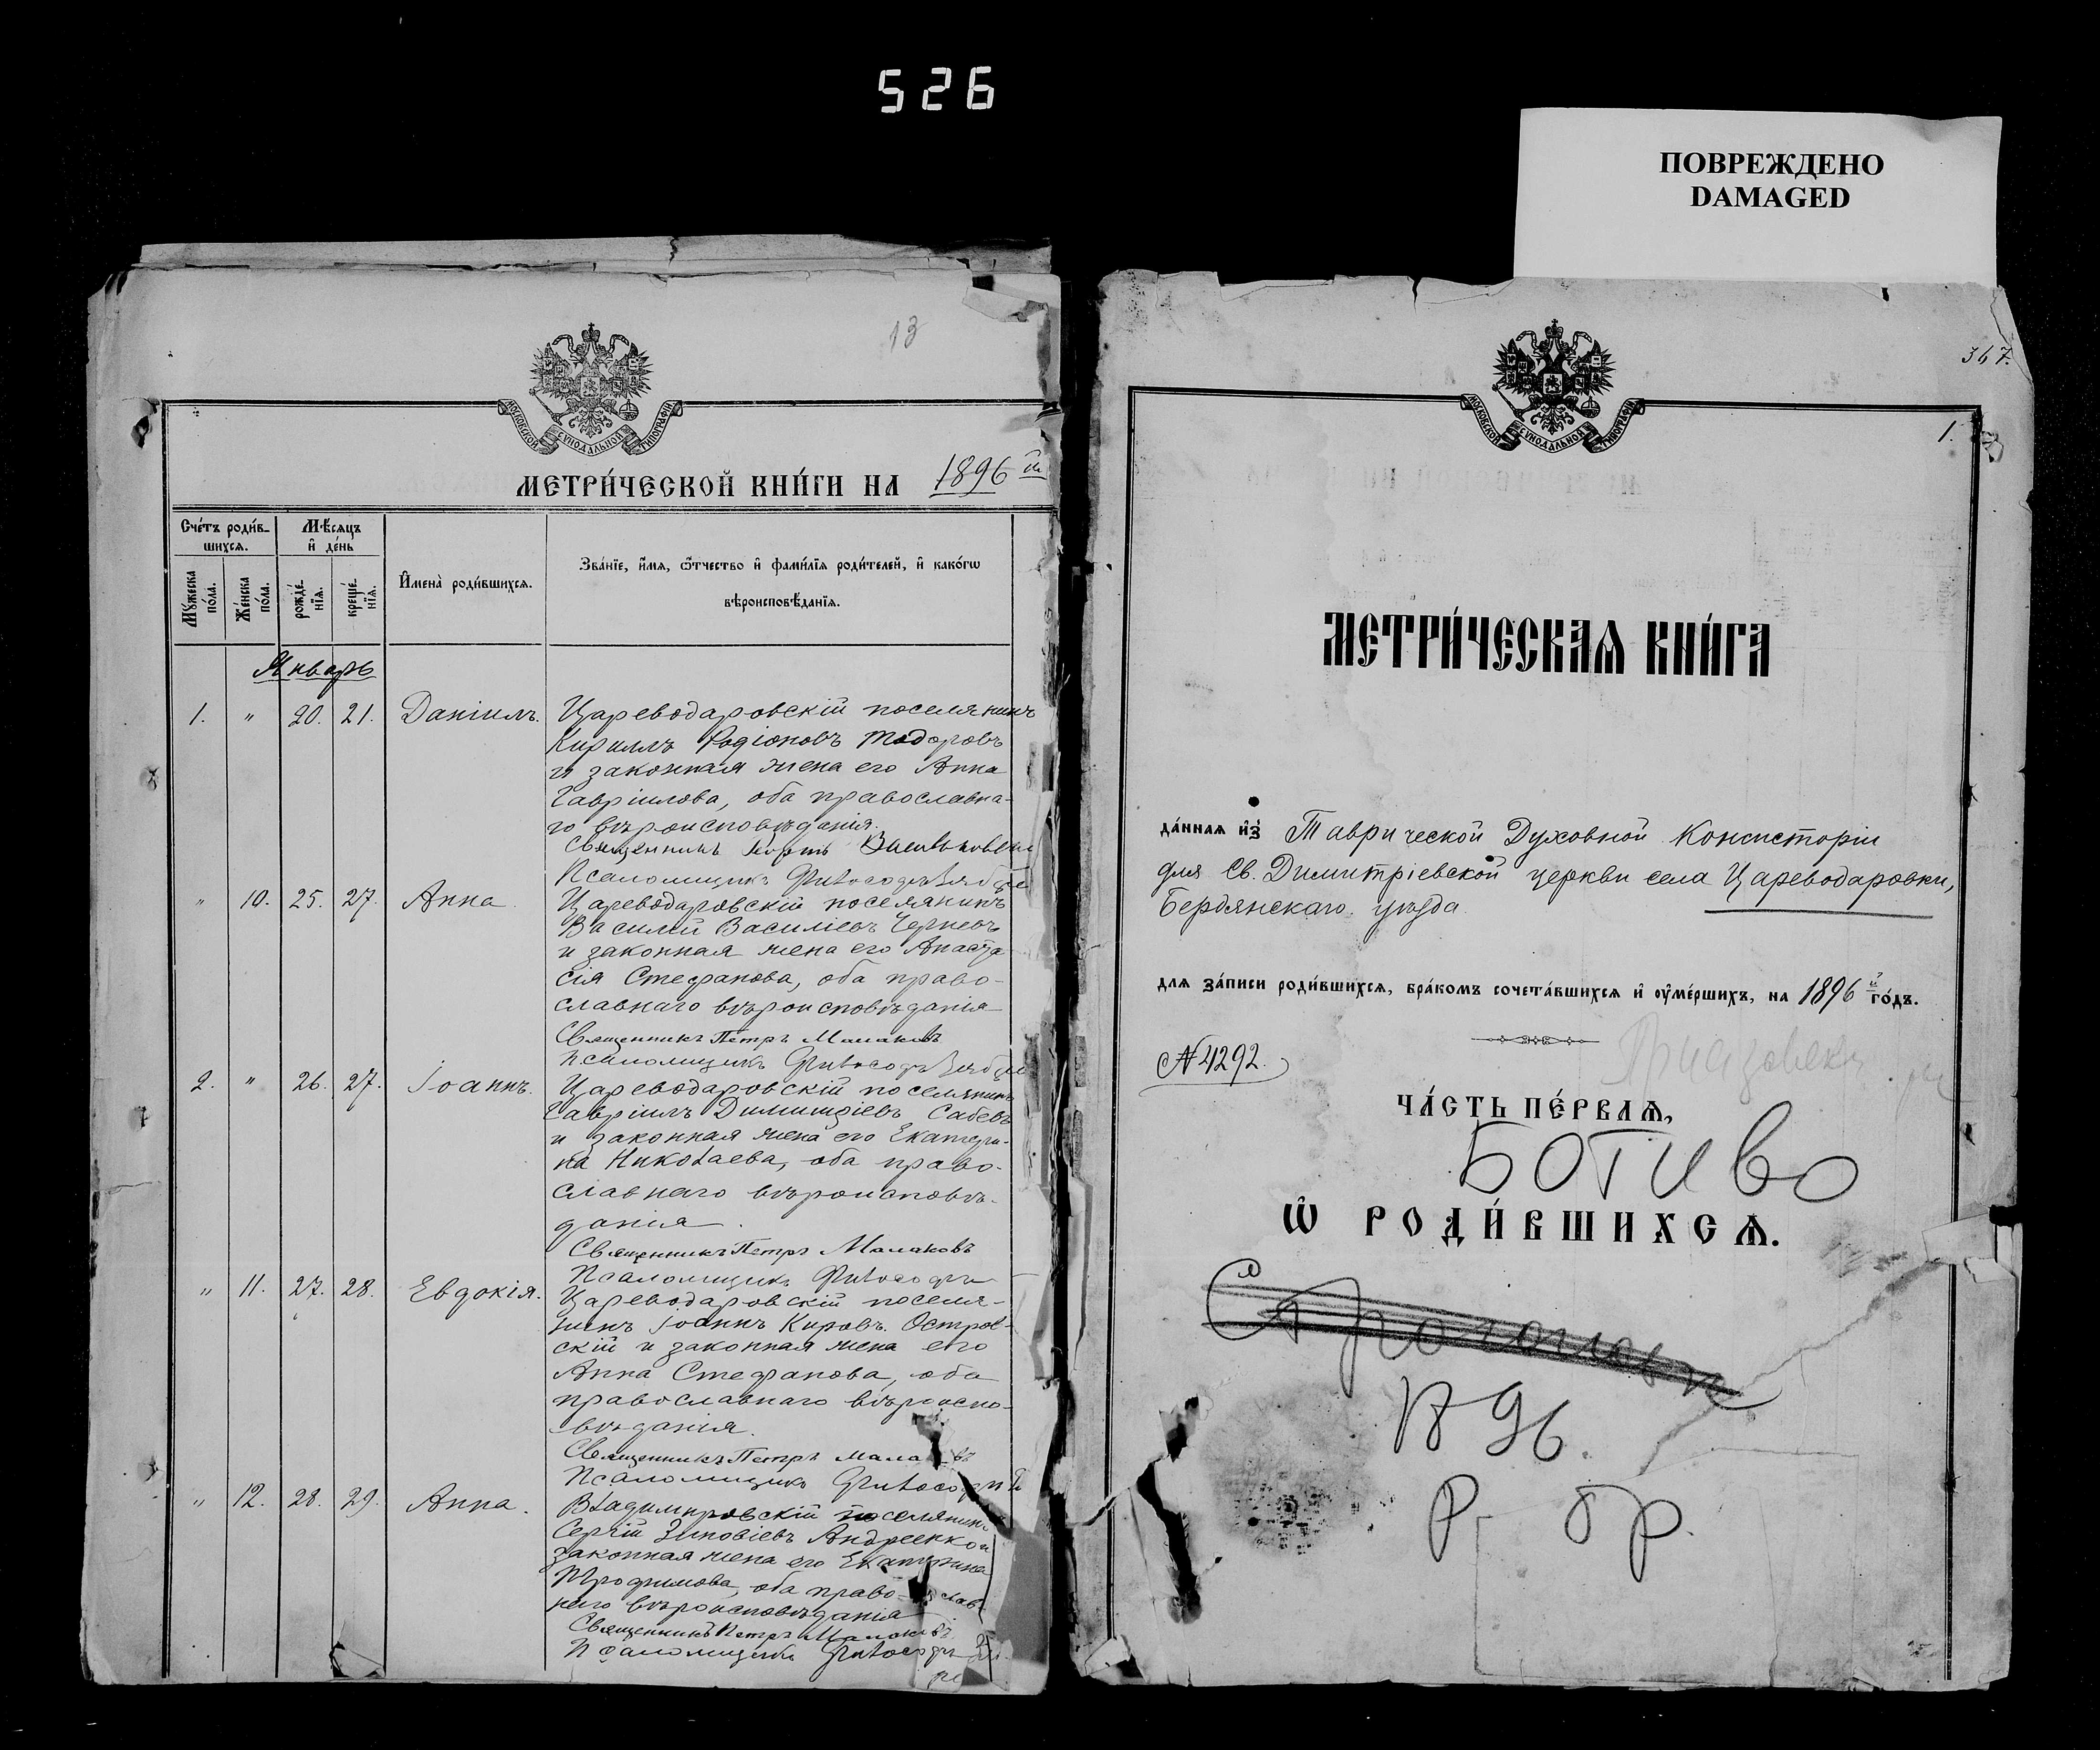 526
ПОВРЕЖДЕНО
DAMAGED
13
МОСКОВСКОЙ СѴНОДАЛЬНОЙ ТИПОГРАФІИ
МЕТРИ́ЧЕСКОЙ КНИ́ГИ НА 1896 й
Сче́тъ роди́в-
шихся.
Мѣ́сяцъ
и҆ де́нь
Мꙋ́жеска
по́ла.
Же́нска
по́ла.
рожде́-
нїѧ.
креще́-
нїѧ.
И҆мена̀ роди́вшихсѧ.
Зва́нїе, и҆́мѧ, ѻ҆́тчество и҆ фами́лїѧ роди́телей, и҆ како́гѡ
вѣроисповѣ́данїѧ.
Январь
1. " 20. 21. Даніилъ. Цареводаровскій поселянинъ
Кириллъ Родіоновъ Тодоровъ
и законная жена его Анна
Гавріилова, оба православна-
го вѣроисповѣданія.
Священникъ
Псаломщикъ
" 10. 25. 27. Анна Цареводаровскій поселянинъ
Василій Василіевъ Черневъ
и законная жена его Анаста-
сія Стефанова, оба право-
славнаго вѣроисповѣданія
Священникъ Петръ Малаховъ
Псаломщикъ
2. " 26. 27. Іоаннъ. Цареводаровскій поселянинъ
Гавріилъ Димитріевъ Сабевъ
и законная жена его Екатери-
на Николаева, оба право-
славнаго вѣроисповѣ-
данія.
Священникъ Петръ Малаховъ
Псаломщикъ
" 11. 27. 28. Евдокія. Цареводаровскій поселя-
нинъ Іоаннъ Кировъ Остров-
скій и законная жена его
Анна Стефанова, оба
православнаго вѣроиспо-
вѣданія.
Священникъ Петръ
Псаломщикъ
" 12. 28. 29. Анна. Владимировскій поселянинъ
Сергій Зиновіевъ Андреенко и
законная жена его Екатерина
Трофимова, оба православ-
наго вѣроисповѣданія
Священникъ Петръ Малаховъ
Псаломщикъ
367.
МОСКОВСКОЙ СѴНОДАЛЬНОЙ ТИПОГРАФІИ
1.
МЕТРИ́ЧЕСКАѦ КНИ́ГА
да́ннаѧ и҆з̾ Таврической Духовной Консисторіи
для Св. Димитріевской церкви села Цареводаровки,
Бердянскаго уѣзда
длѧ за́писи роди́вшихсѧ, бра́комъ сочета́вшихсѧ и҆ ᲂу҆ме́ршихъ, на 1896 й го́дъ.
№ 4292.
ЧА́СТЬ ПЕ́РВАѦ,
БОТИВО
Ѡ҆ РОДИ́ВШИХСѦ.
1896.
Р бр.